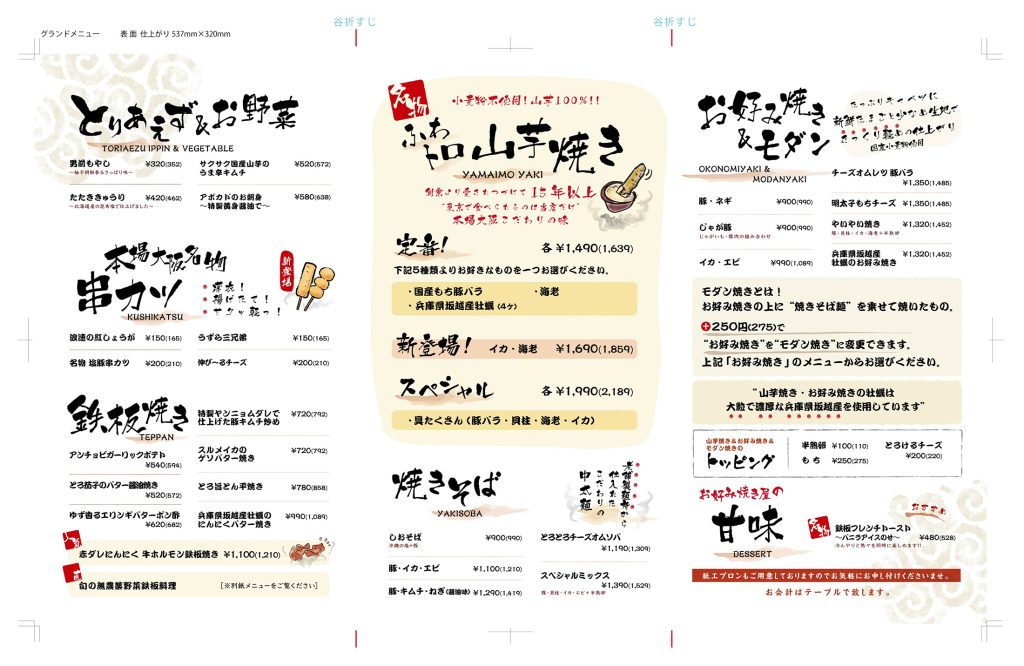 グランドメニュー 表 面 仕上がり 537mm×320mm
谷折すじ
谷折すじ
とりあえず&お野菜
TORIAEZU IPPIN & VEGETABLE
男前もやし ¥320(352)
〜柚子胡椒香るさっぱり味〜
たたききゅうり ¥420(462)
〜北海道産の昆布塩で仕上げました〜
サクサク国産山芋の
うま辛キムチ ¥520(572)
アボカドのお刺身
〜特製燻身醤油で〜 ¥580(638)
本場大阪名物
串カツ
KUSHIKATSU
薄衣!
揚げたて!
サクッ軽っ!
新登場
浪速の紅しょうが ¥150(165)
うずら三兄弟 ¥150(165)
名物 塩豚串カツ ¥200(210)
伸び〜るチーズ ¥200(210)
鉄板焼き
TEPPAN
特製ヤンニョムダレで
仕上げた豚キムチ炒め ¥720(792)
アンチョビガーリックポテト
¥540(594)
スルメイカの
ゲソバター焼き ¥720(792)
とろ茄子のバター醤油焼き
¥520(572)
とろ旨とん平焼き ¥780(858)
ゆず香るエリンギバターポン酢
¥620(682)
兵庫県坂越産牡蠣の
にんにくバター焼き ¥990(1,089)
人気
赤ダレにんにく 牛ホルモン鉄板焼き ¥1,100(1,210)
旬の無農薬野菜鉄板料理 [※別紙メニューをご覧ください]
名物
小麦粉不使用!山芋100%!!
ふわトロ山芋焼き
YAMAIMO YAKI
創業より愛されつづけて15年以上
"東京で食べられるのは当店だけ"
本場大阪こだわりの味
定番! 各 ¥1,490(1,639)
下記5種類よりお好きなものを一つお選びください。
・国産もち豚バラ ・海老
・兵庫県坂越産牡蠣 (4ヶ)
新登場! イカ・海老 ¥1,690(1,859)
スペシャル 各 ¥1,990(2,189)
・具だくさん(豚バラ・貝柱・海老・イカ)
焼きそば
YAKISOBA
老舗製麺所から
仕入れた
こだわりの
中太麺
しおそば ¥900(990)
沖縄の塩・豚
豚・イカ・エビ ¥1,100(1,210)
豚・キムチ・ねぎ(醤油味) ¥1,290(1,419)
とろとろチーズオムソバ
¥1,190(1,309)
スペシャルミックス
¥1,390(1,529)
豚・貝柱・イカ・エビ+半熟卵
お好み焼き
&モダン
OKONOMIYAKI &
MODANYAKI
たっぷりキャベツに
新鮮たまごと少なめ生地で
さっくり軽めの仕上がり
国産小麦粉使用
豚・ネギ ¥900(990)
じゃが豚 ¥900(990)
じゃがいも・豚肉の組み合わせ
イカ・エビ ¥990(1,089)
チーズオムレツ 豚バラ
¥1,350(1,485)
明太子もちチーズ ¥1,350(1,485)
やいやい焼き ¥1,320(1,452)
豚・貝柱・イカ・海老+半熟卵
兵庫県坂越産
牡蠣のお好み焼き ¥1,320(1,452)
モダン焼きとは!
お好み焼きの上に“焼きそば麺”を乗せて焼いたもの。
+250円(275)で
“お好み焼き”を“モダン焼き”に変更できます。
上記「お好み焼き」のメニューからお選びください。
“山芋焼き・お好み焼きの牡蠣は
大粒で濃厚な兵庫県坂越産を使用しています”
山芋焼き&お好み焼き&
モダン焼きの
トッピング
半熟卵 ¥100(110)
もち ¥250(275)
とろけるチーズ
¥200(220)
お好み焼き屋の
甘味
DESSERT
名物
おすすめ
鉄板フレンチトースト
〜バニラアイスのせ〜 ¥480(528)
冷んやりと熱々を同時に楽しめます!!
紙エプロンもご用意しておりますのでお気軽にお申し付けくださいませ。
お会計はテーブルで致します。